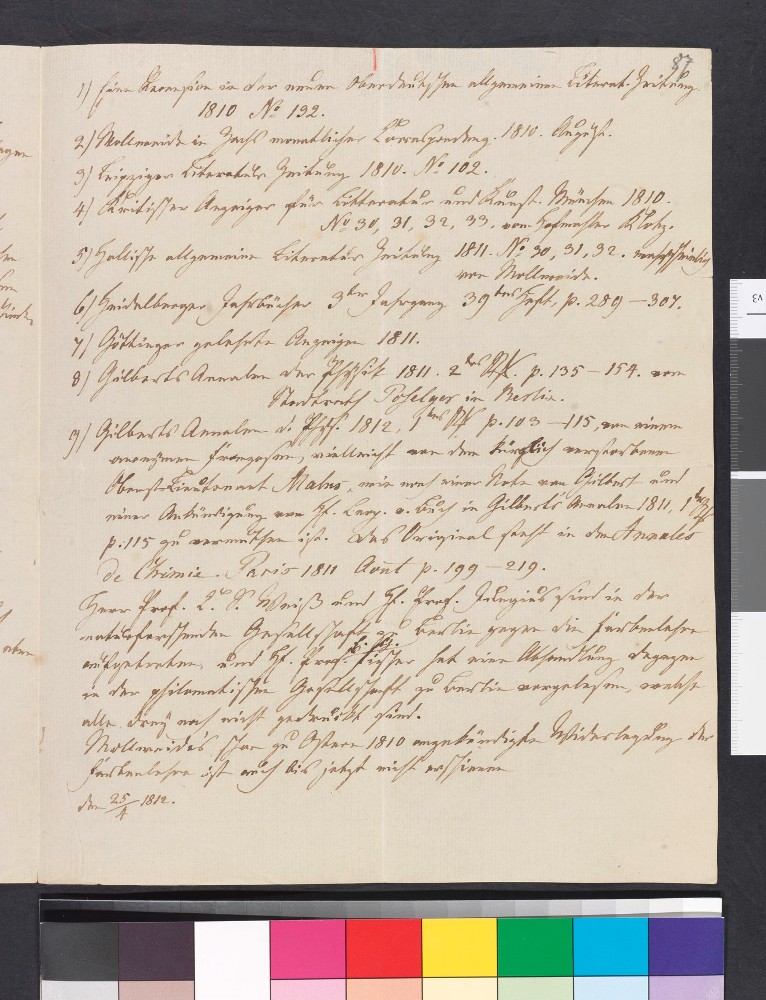 87
1) Eine Recension in der neuen Oberdeutschen allgemeinen Literat. Zeitung
1810 No 132.
2) Mollweide in Zachs monatlicher Correspondenz. 1810. August.
3) Leipziger Literatur Zeitung 1810. No 102.
4) Kritischer Anzeiger für Litteratur und Kunst. München 1810.
No 30, 31, 32, 33. vom Hofmahler Klotz.
5) Hallische allgemeine Literatur Zeitung 1811. No 30, 31, 32. wahrscheinlich
von Mollweide.
6) Heidelberger Jahrbücher 3ter Jahrgang 39tes Heft, p. 289 – 307.
7) Göttinger gelehrte Anzeigen 1811.
8) Gilberts Annalen der Physik 1811. 2tes p. 135 – 154. vom
Stadtrath Poselger in Berlin.
9) Gilberts Annalen d. Phys. 1812, 1tes p. 103 – 115, von einem
anonymen Franzosen, vielleicht von dem kürzlich verstorbenen
Obrist-Lieutenant Malus, wie nach einer Note von Gilbert und
einer Ankündigung von H. Leop. v. Buch in Gilberts Annalen 1811,
p. 115 zu vermuthen ist. Das Original steht in den Annales
de Chimie. Paris 1811 Août p. 199 – 219.
Herr Prof. Weiß und H. Prof. Jungius sind in der
naturforschenden Gesellschaft zu Berlin gegen die Farbenlehre
aufgetreten, und H. Prof. Fischer hat eine Abhandlung dagegen
in der philomatischen Gesellschaft zu Berlin vorgelesen, welche
alle drey noch nicht gedruckt sind.
Mollweide's schon zu Ostern 1810 angekündigte Widerlegung der
Farbenlehre ist auch bis jetzt nicht erschienen
den 25/4 1812.